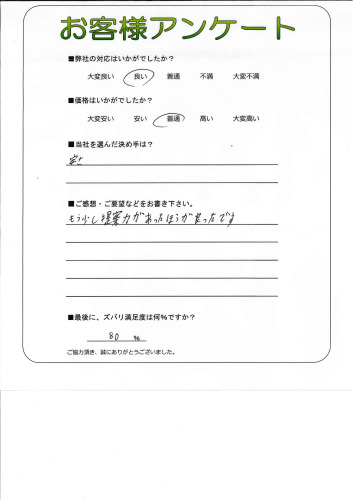 お客様アンケート
■弊社の対応はいかがでしたか？
大変良い 良い 普通 不満 大変不満
■価格はいかがでしたか？
大変安い 安い 普通 高い 大変高い
■当社を選んだ決め手は？
■ご感想・ご要望などをお書き下さい。
もう少し提案力があったほうが良ったです
■最後に、ズバリ満足度は何％ですか？
80 ％
ご協力頂き、誠にありがとうございました。